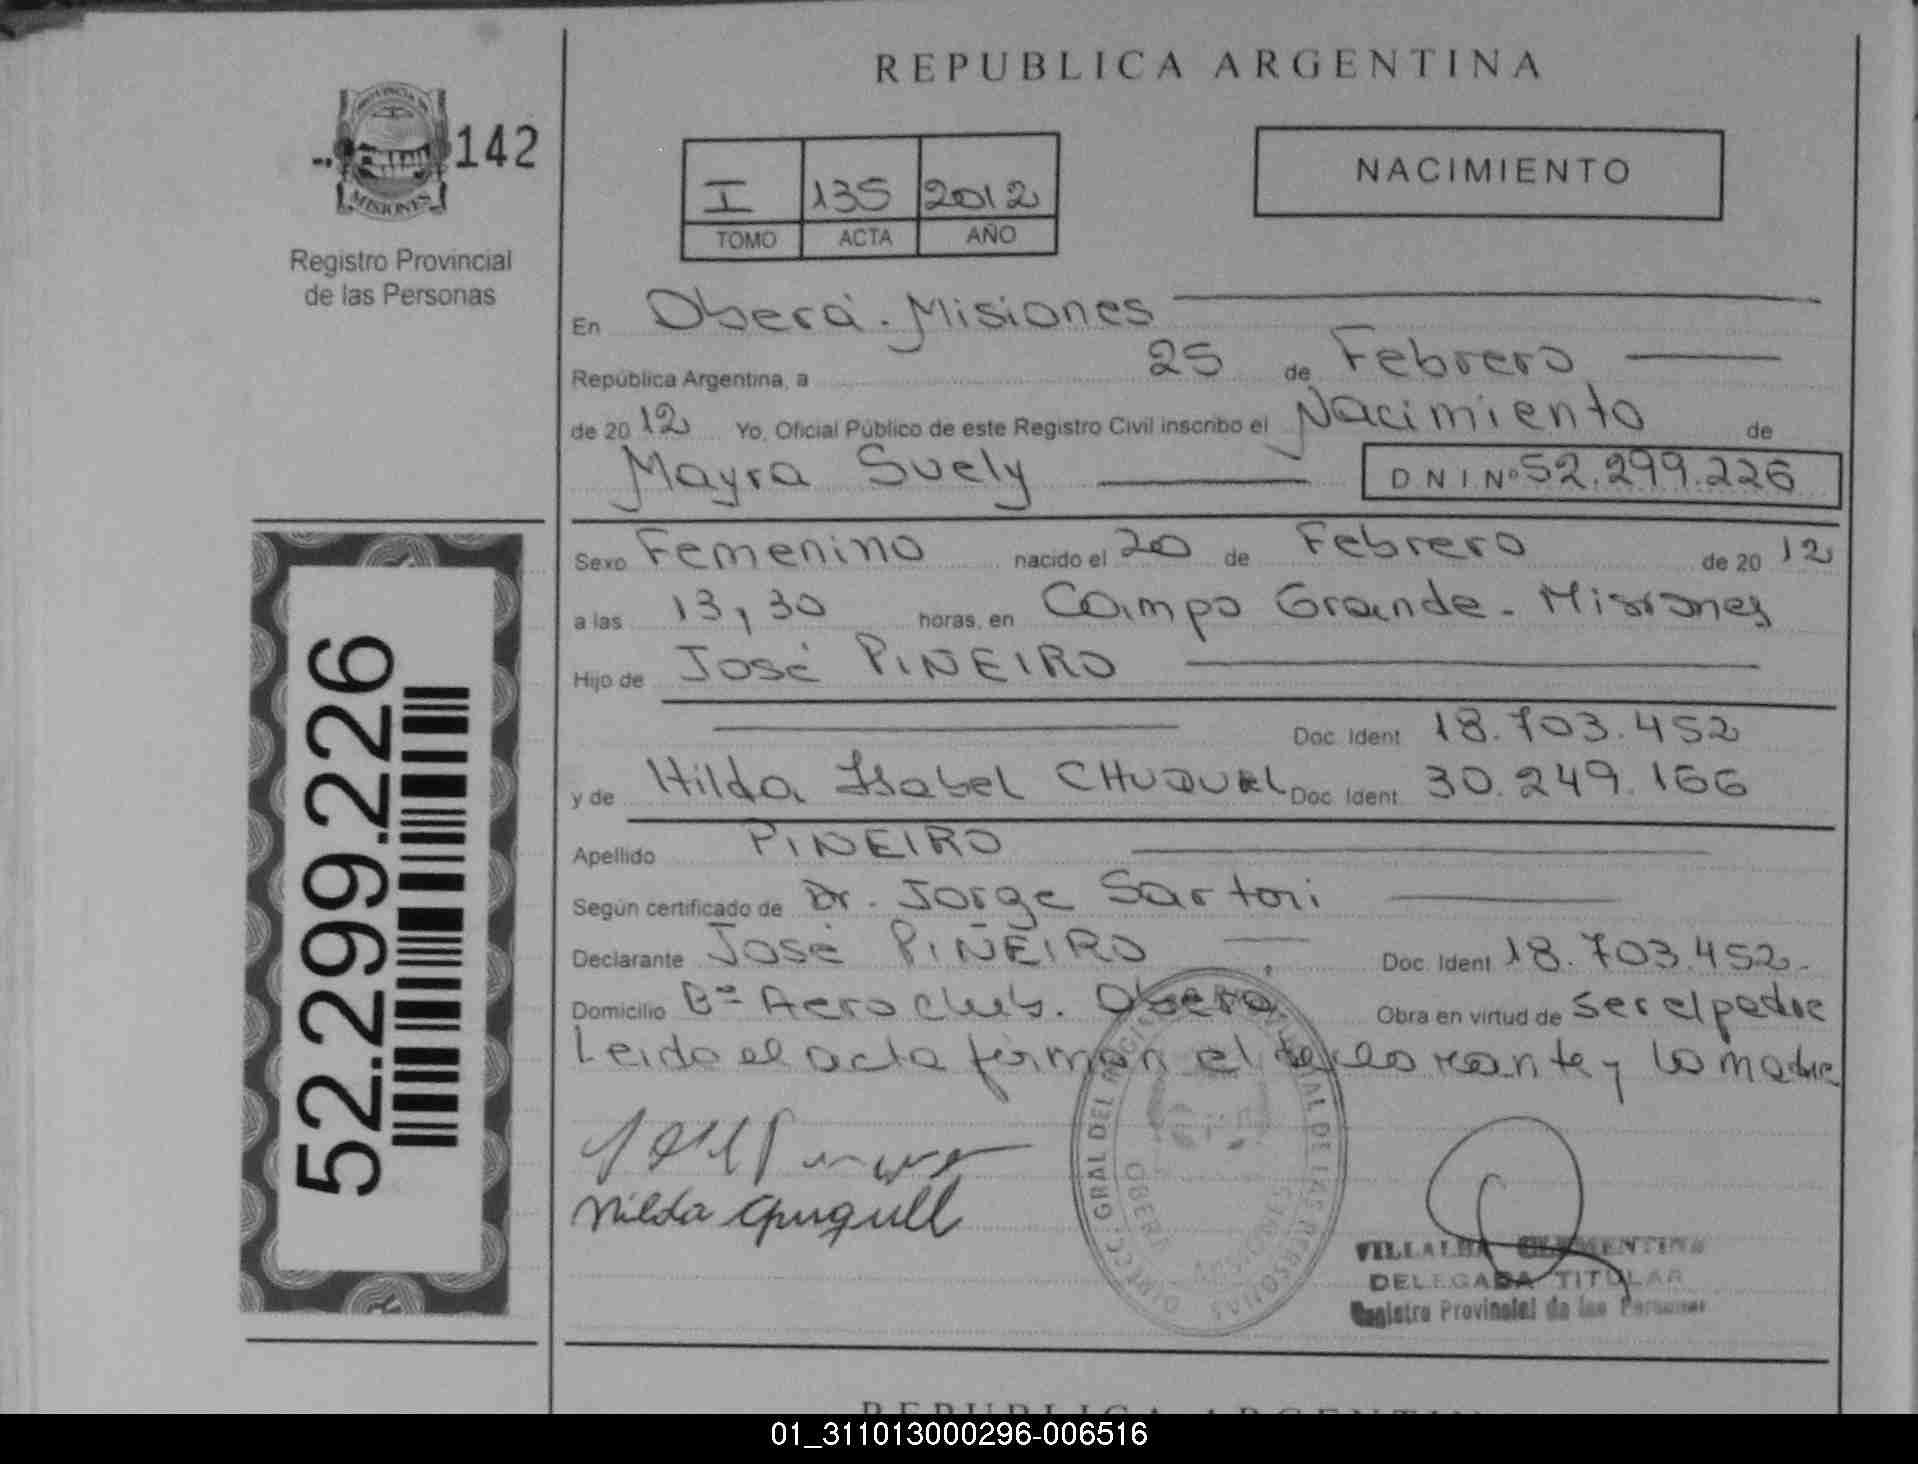 REPUBLICA ARGENTINA
PROVINCIA DE
MISIONES
142
Registro Provincial
de las Personas
I 135 2012
TOMO ACTA AÑO
NACIMIENTO
En Oberá. Misiones
República Argentina, a 25 de Febrero
de 2012 Yo, Oficial Público de este Registro Civil inscribo el Nacimiento de
Mayra Suely DNI Nº 52.299.226
Sexo Femenino nacido el 20 de Febrero de 2012
a las 13,30 horas, en Campo Grande - Misiones
Hijo de José PIÑEIRO
Doc. Ident 18.703.452
y de Hilda Isabel CHUQUEL Doc. Ident. 30.249.166
Apellido PIÑEIRO
Según certificado de Dr. Jorge Sartori
Declarante José PIÑEIRO Doc. Ident 18.703.452.
Domicilio Bº Aero club. Oberá, Obra en virtud de ser el padre
Leido el acta firman el declarante y la madre
52.299.226
Hilda
VILLALBA CLEMENTINA
DELEGADA TITULAR
Registro Provincial de las Personas
REPUBLICA ARGENTINA
01_311013000296-006516